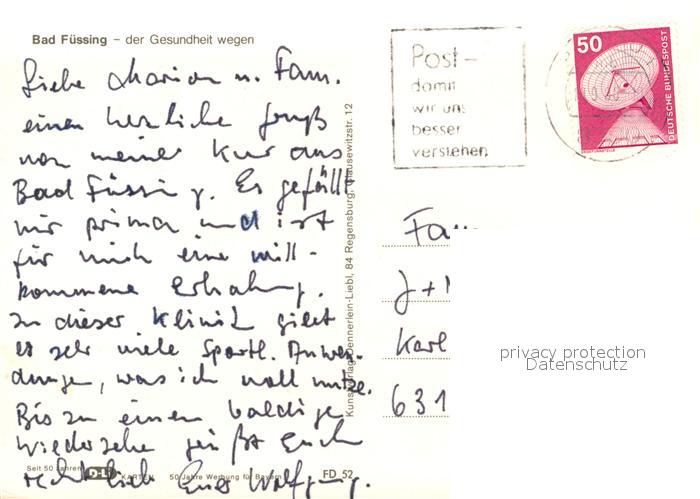 Bad Füssing – der Gesundheit wegen
Liebe Marion u. Fam.
einen herzliche Gruß
von meiner Kur aus
Bad Füssing. Es gefällt
mir prima und ist
für mich eine will-
kommene Erholung.
In dieser Klinik giebt
es sehr viele Sportl. Anwen-
dungen, was ich voll nutze.
Bis zu einem baldige
Wiedersehe grüßt Euch
recht herzlich Euer Wolfgang.
Seit 50 Jahren
KARTEN
50 Jahre Werbung für Bayern
FD 52
Kunstverlag Dennerlein-Liebl, 84 Regensburg, Clausewitzstr. 12
Post –
damit
wir uns
besser
verstehen
50
DEUTSCHE BUNDESPOST
ERDEFUNKSTELLE
Fam
J +
Karl
631
privacy protection
Datenschutz